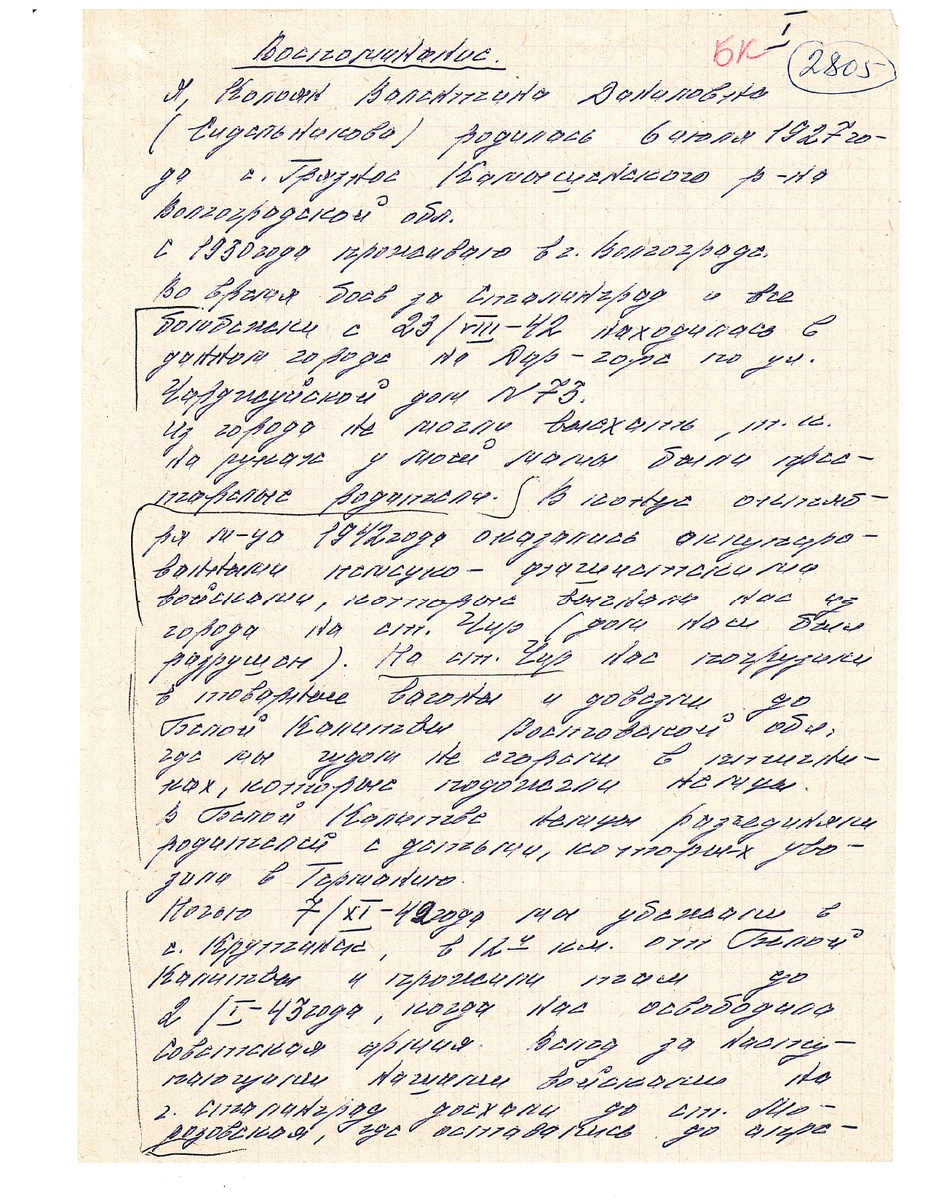 I
БК 2805
Воспоминание.
Я, Колоян Валентина Даниловна
(Сидельникова) родилась 6 июля 1927 го-
да с. Грязное Камышенского р-на
Волгоградской обл.
С 1930 года проживаю в г. Волгограде.
Во время боев за Сталинград и все
бомбежки с 23/VIII-42 находилась в
данном городе на Дар-горе по ул.
Чарджуйской дом N 73.
Из города не могли выехать, т.к.
на руках у моей мамы были прес-
тарелые родители. В конце октяб-
ря м-ца 1942 года оказались оккупиро-
ванными немецко-фашистскими
войсками, которые выгнали нас из
города на ст. Чир (дом наш был
разрушен). На ст. Чир нас погрузили
в товарные вагоны и довезли до
Белой Калитвы Ростовской обл.
где мы чудом не сгорели в
которые подожгли немцы.
В Белой Калитве немцы разъединяли
родителей с детьми, которых уво-
зили в Германию.
Ночью 7/XI-42 года мы убежали в
с. Крутинское, в 12 км. от Белой
Калитвы и прожили там до
2/I-43 года, когда нас освободила
Советская армия. Вслед за насту-
пающими нашими войсками на
г. Сталинград доехали до ст. Мо-
розовская, где оставались до апре-